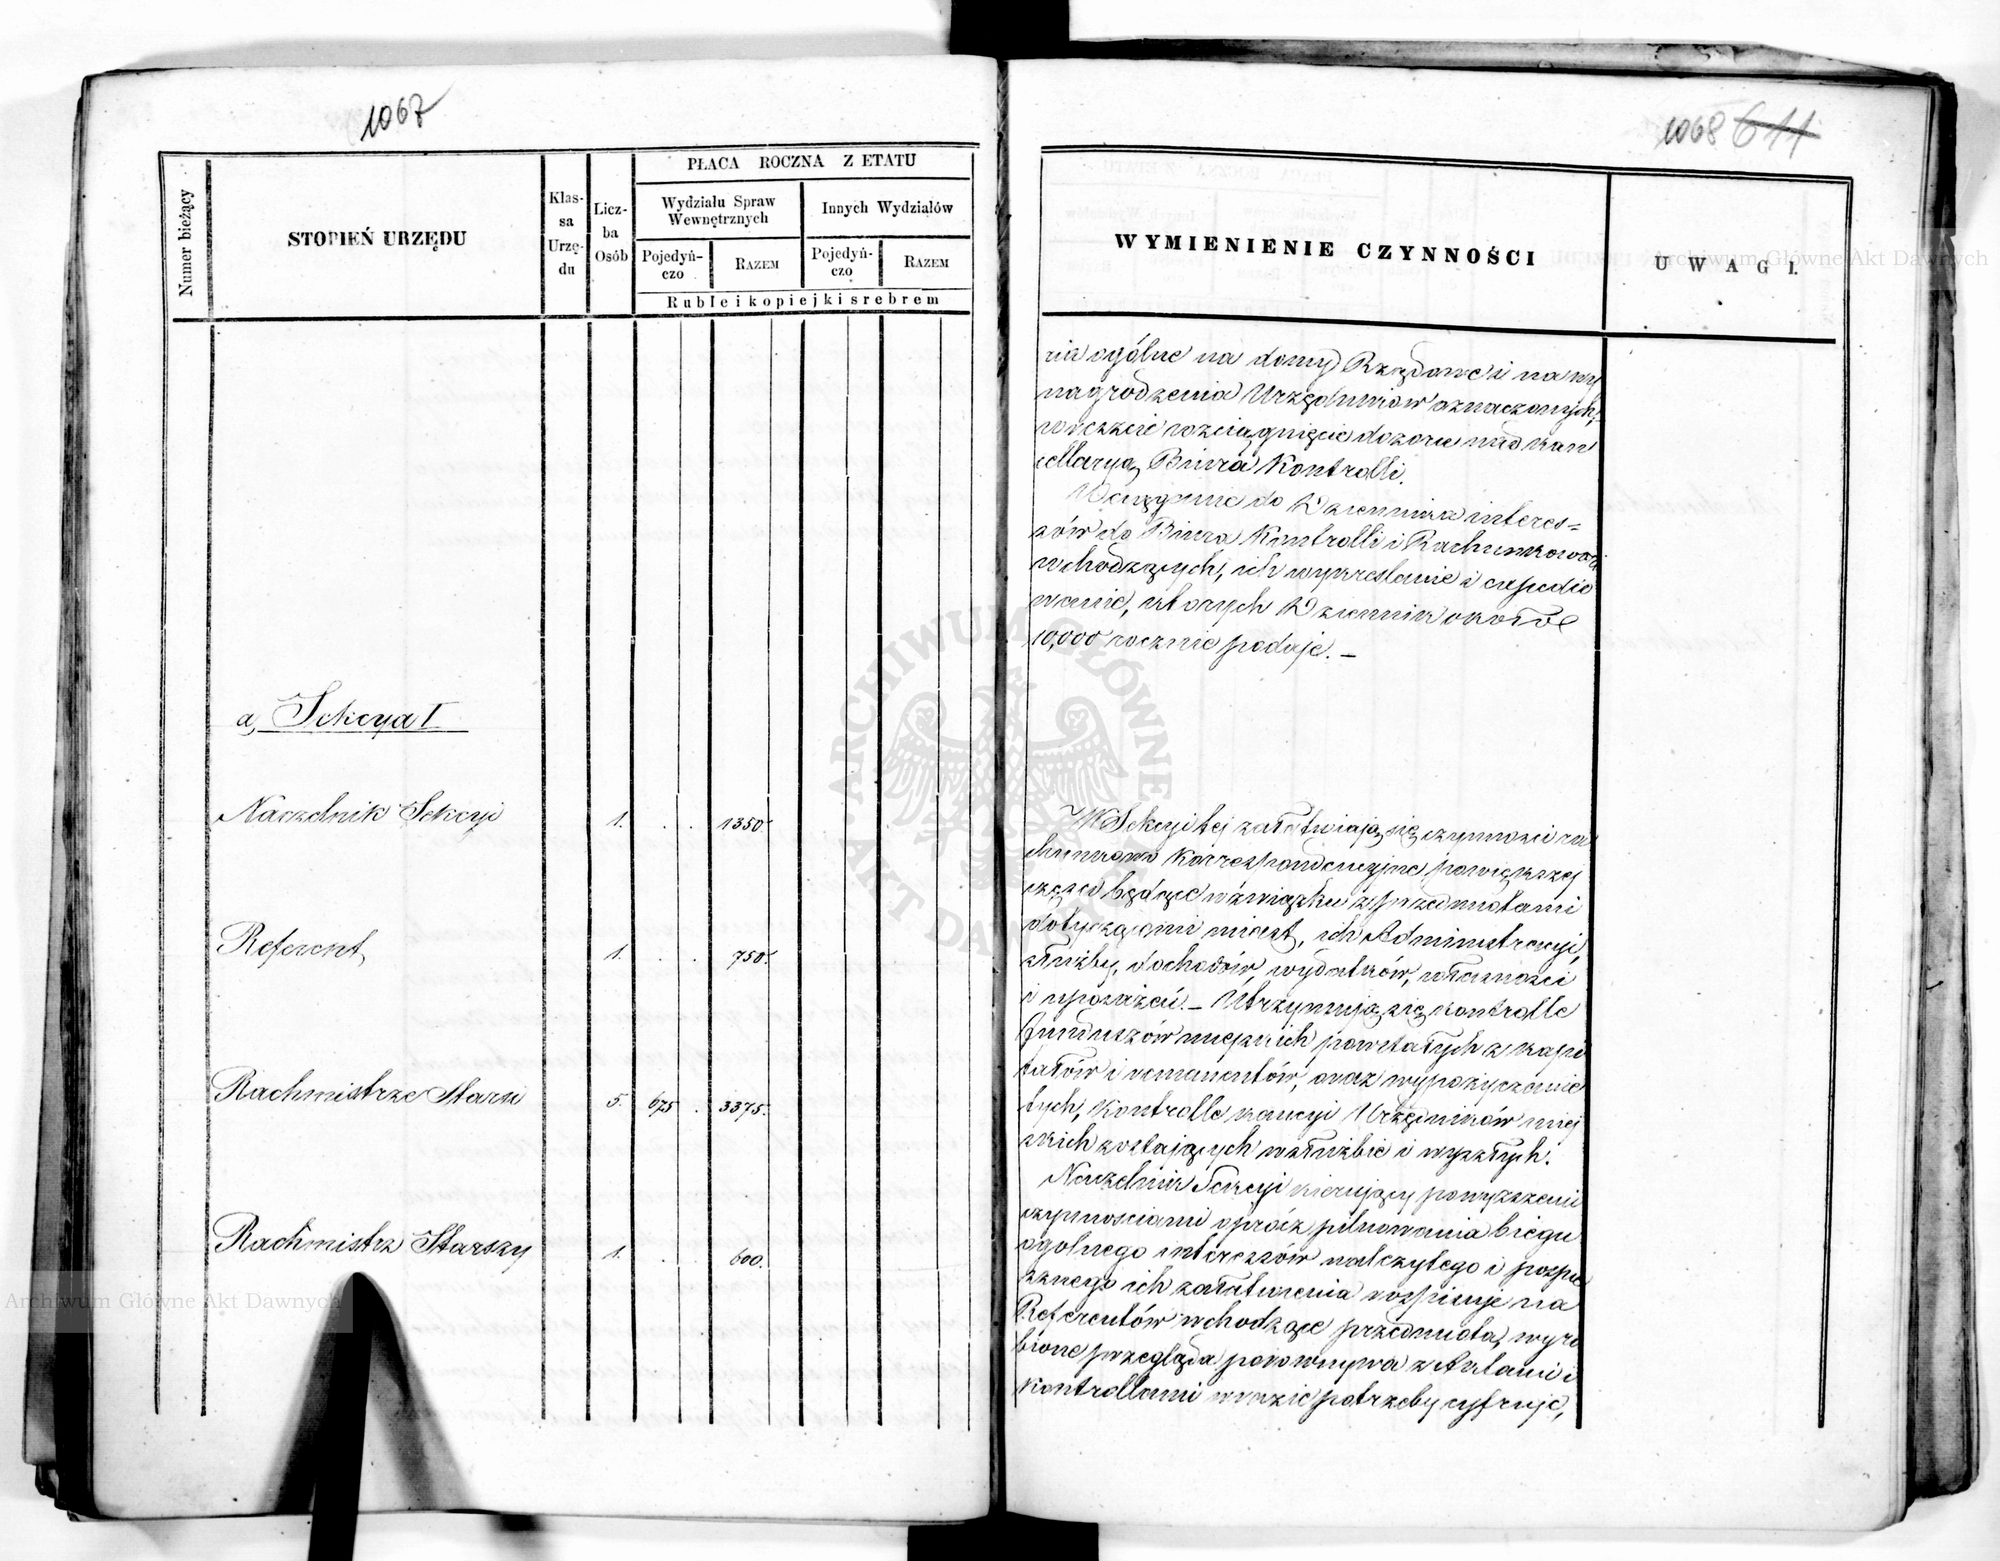 1067
Numer bieżący
STOPIEŃ URZĘDU
Klas-
sa
Urzę-
du
Licz-
ba
Osób
PŁACA ROCZNA Z ETATU
Wydziału Spraw
Wewnętrznych
Innych Wydziałów
Pojedyń-
czo
RAZEM
Pojedyń-
czo
RAZEM
Ruble i kopiejki srebrem
a, Sekcya I
Naczelnik Sekcyi 1. . . 1350.
Referent, 1. . . 750.
Rachmistrze Starsi 5. 675 . 3375.
Rachmistrz Starszy 1. . . 600.
1068 611
WYMIENIENIE CZYNNOŚCI
UWAGI.
nia ogólne na domy Rządowe i na wy
nagrodzenia Urzędników oznaczonych,
wreszcie rozciągnięcie dozoru nad kan
cellaryą Biura Kontrolli.
Wciąganie do Dziennika interes=
sów do Biura Kontrolli i Rachunkowości
wchodzących, ich wykreślanie i expedio
wanie, których Dziennik około
10,000 rocznie podaje. –
W Sekcyi tej załatwiają się czynności ra
chunkowo korrespondencyjne po większej
części będące w związku z przedmiotami
dotyczącemi miast, ich Administracyi,
służby, dochodów, wydatków, własności
i uposażeń. – Utrzymują się kontrolle
funduszów miejskich powstałych z kapi
tałów i remanentów, oraz wypożyczenie
tych, kontrolle kaucyi Urzędników miej
skich zostających w służbie i wyszłych.
Naczelnik Sekcyi kierujący powyższemi
czynnościami oprócz pilnowania biegu
ogólnego interessów należytego i pospie
sznego ich załatwienia rozpisuje na
Referentów wchodzące przedmiota, wyro
bione przegląda porównywa z Aktami i
Kontrollami w razie potrzeby cyfruje,
ARCHIWUM GŁÓWNE AKT DAWNYCH
Archiwum Główne Akt Dawnych
Archiwum Główne Akt Dawnych